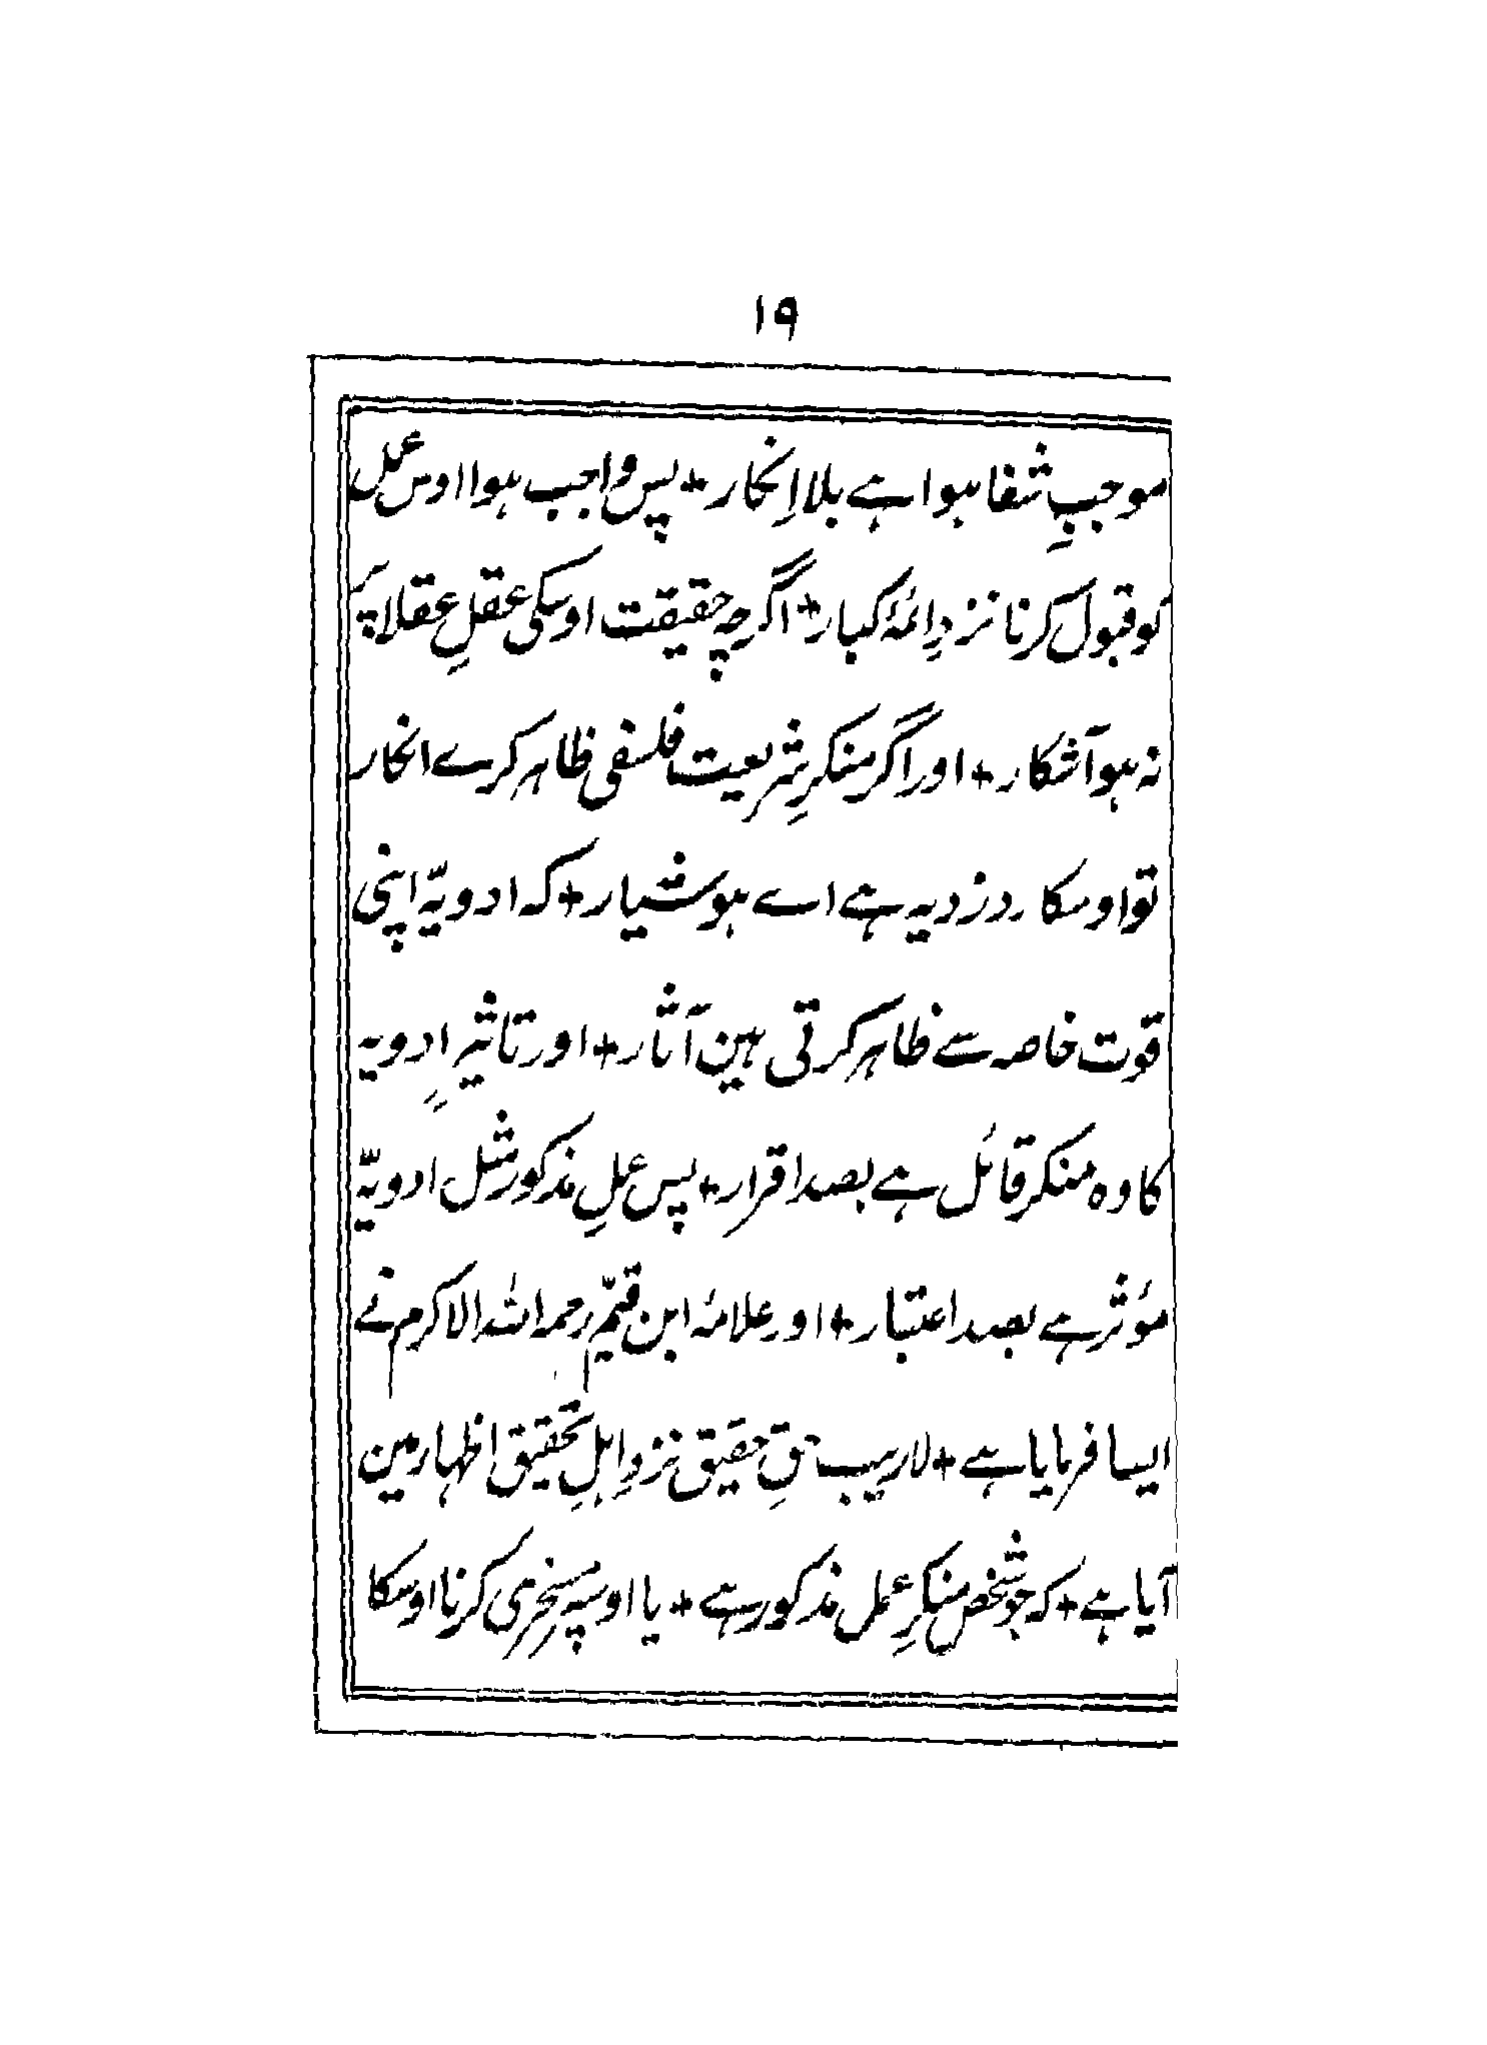 ۱۹
موجبِ شفا ہوا ہے بلا اِنکار + پس واجب ہوا اوس عمل
کو قبول کرنا نزدِ ائمۂ کبار + اگرچہ حقیقت اوسکی عقلِ عقلا پر
نہ ہو آشکار + اور اگر منکرِ شریعت فلسفی ظاہر کرے انکار
تو اوسکا رد زدیہ ہے اے ہوشیار + کہ ادویّہ اپنی
قوت خاصہ سے ظاہر کرتی ہین آثار + اور تاثیرِ ادویہ
کا وہ منکر قائل ہے بصد اقرار + پس عملِ مذکور مثل ادویّہ
مؤثر ہے بصد اعتبار + اور علامۂ ابن قیّم رحمہ اللہ الاکرم نے
ایسا فرمایا ہے + لاریب حقِ حقیق نزدِ اہلِ تحقیق اظہار مین
آیا ہے + کہ جو شخص منکرِ عمل مذکور ہے + یا اوسپہ مسخری کرنا اوسکا